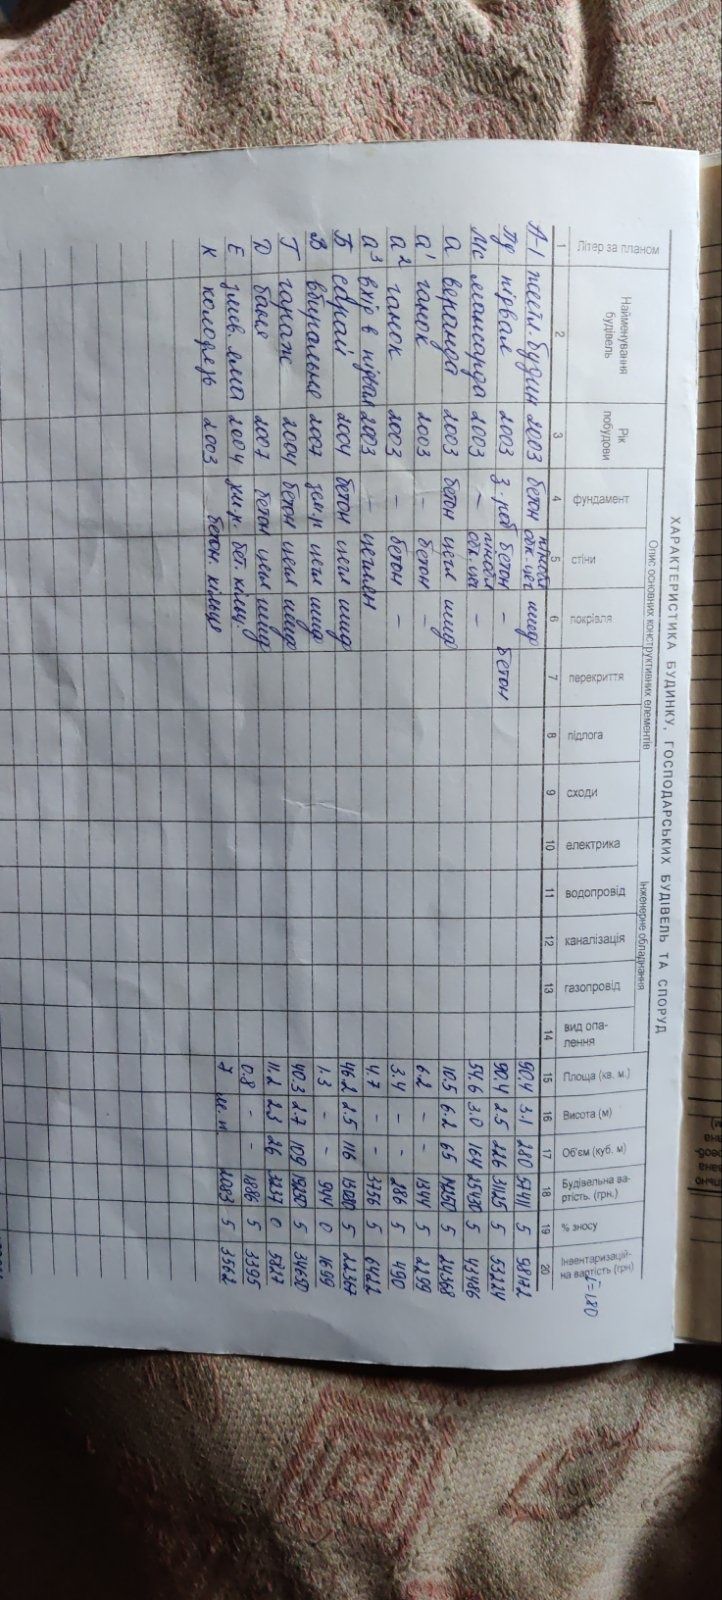 ХАРАКТЕРИСТИКА БУДИНКУ, ГОСПОДАРСЬКИХ БУДІВЕЛЬ ТА СПОРУД
і=1.80
Літер за планом Найменування будівель Рік побудови Опис основних конструктивних елементів Інженерне обладнання Площа (кв. м.) Висота (м) Об'єм (куб. м) Будівельна вартість. (грн.) % зносу Інвентаризаційна вартість (грн)
фундамент стіни покрівля перекриття підлога сходи електрика водопровід каналізація газопровід вид опалення
1 2 3 4 5 6 7 8 9 10 11 12 13 14 15 16 17 18 19 20
А-1 будин 2003 бетон шифер 90.4 3.1 280 57411 5 98172
Пд підвал 2003 з. роб бетон - бетон 90.4 2.5 226 31125 5 53224
Мс мансарда 2003 - - 54.6 3.0 164 25430 5 43486
а веранда 2003 бетон цегл шиф 10.5 6.2 65 14250 5 24368
а¹ ганок 2003 - бетон - 6.2 - - 1344 5 2299
а² ганок 2003 - бетон - 3.4 - - 286 5 490
а³ вхід в підвал 2003 - цеглян 4.7 - - 3756 5 6422
Б сарай 2004 бетон цегл шиф 46.2 2.5 116 5
В вбиральня 2007 цегл шиф 1.3 - - 944 0 1699
Г гараж 2004 бетон цегл шиф 40.3 2.7 109 5 34650
Д баня 2007 бетон цегл шиф 11.2 2.3 26 3237 0 5827
Е яма 2004 бет. кільц. 0.8 - - 1886 5 3395
К колодязь 2003 бетон. кільце 7 м.п. 2083 5 3562